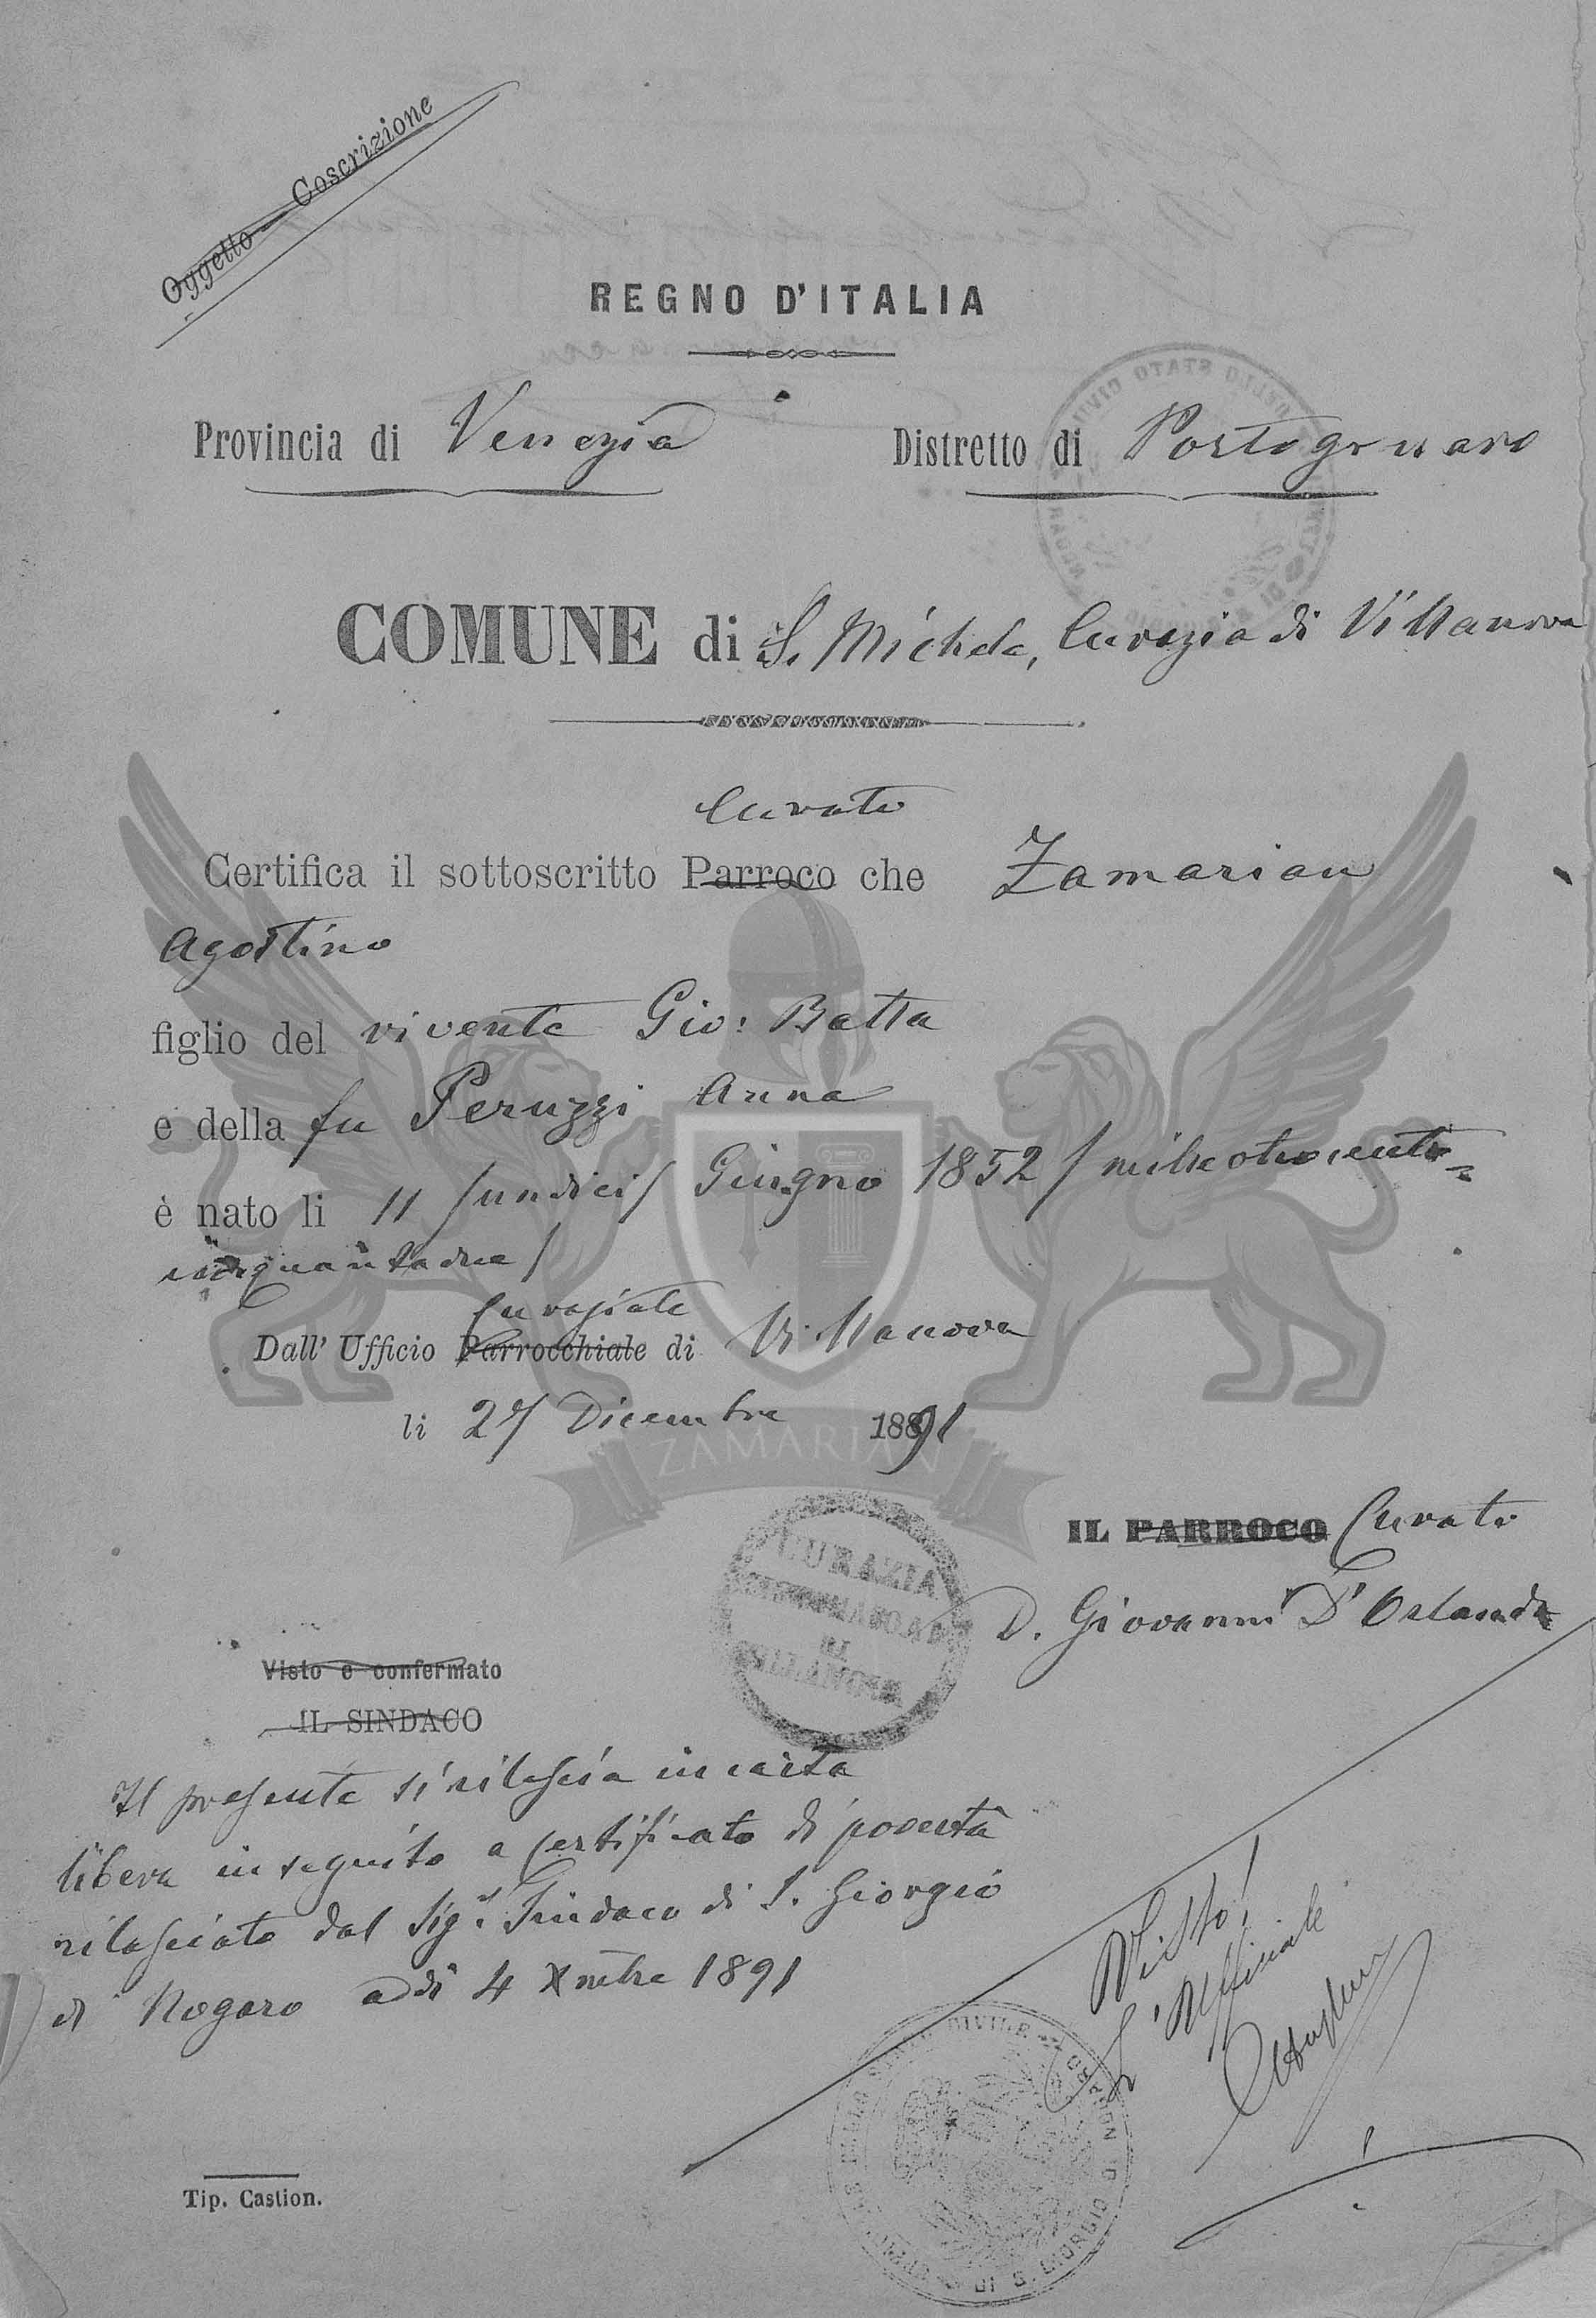 Oggetto — Coscrizione
REGNO D'ITALIA
Provincia di Venezia
Distretto di Portogruaro
COMUNE di S. Michele, Curazia di Villanova
Curato
Certifica il sottoscritto Parroco che Zamarian
Agostino
figlio del vivente Gio: Batta
e della fu Peruzzi Anna
è nato li 11 /undici/ Giugno 1852 / milleottocento=
cinquantadue /
Curaziale
Dall' Ufficio Parrocchiale di Villanova
li 27 Dicembre 1891
ZAMARIAN
IL PARROCO Curato
D. Giovanni D'Orlandi
CURAZIA
DI
VILLANOVA
Visto e confermato
IL SINDACO
Il presente si rilascia in carta
libera in seguito a certificato di povertà
rilasciato dal Sig.r Sindaco di S. Giorgio
di Nogaro addì 4 Xmbre 1891
Visto!
L'Uffiziale
STATO CIVILE
DI S. GIORGIO
Tip. Castion.